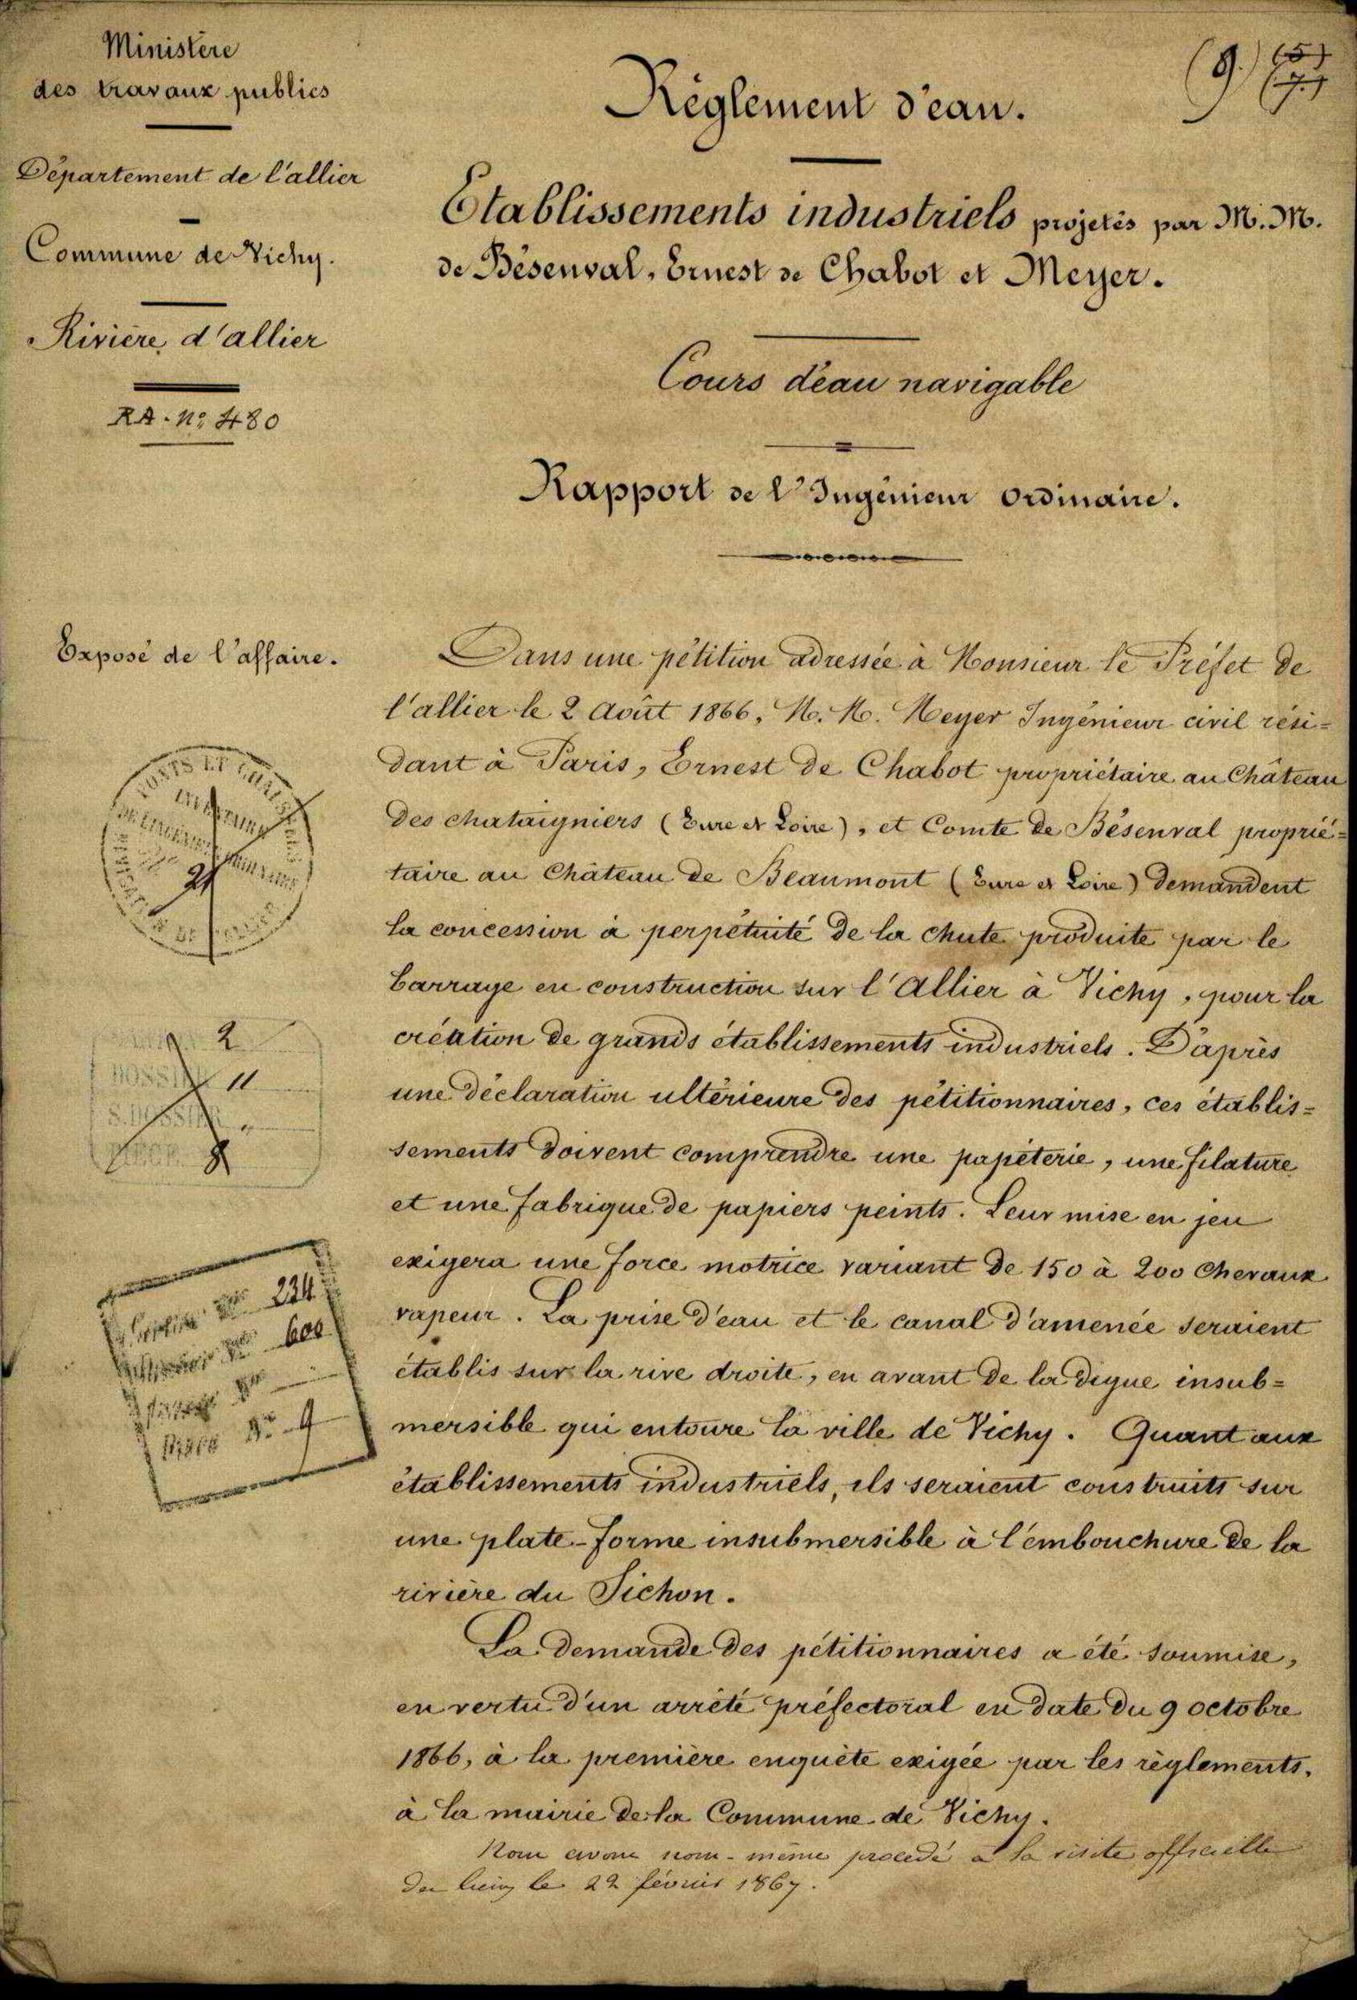 Ministère
des travaux publics
Département de l'allier
Commune de Vichy.
Rivière d'allier
RA. Nº 480
(9.) (5)
(7.)
Règlement d'eau.
Etablissements industriels projetés par M. M.
de Bésenval, Ernest de Chabot et Meyer.
Cours d'eau navigable
Rapport de l'Ingénieur ordinaire.
Exposé de l'affaire.
Dans une pétition adressée à Monsieur le Préfet de
l'allier le 2 Août 1866, M. M. Meyer Ingénieur civil rési=
dant à Paris, Ernest de Chabot propriétaire au Château
des chataigniers (Eure et Loire), et Comte de Bésenval proprié=
taire au Château de Beaumont (Eure et Loire) demandent
la concession à perpétuité de la chute produite par le
barrage en construction sur l'Allier à Vichy, pour la
création de grands établissements industriels. D'après
une déclaration ultérieure des pétitionnaires, ces établis=
sements doivent comprendre une papéterie, une filature
et une fabrique de papiers peints. Leur mise en jeu
exigera une force motrice variant de 150 à 200 chevaux
vapeur. La prise d'eau et le canal d'amenée seraient
établis sur la rive droite, en avant de la digue insub=
mersible qui entoure la ville de Vichy. Quant aux
établissements industriels, ils seraient construits sur
une plate-forme insubmersible à l'embouchure de la
rivière du Sichon.
La demande des pétitionnaires a été soumise,
en vertu d'un arrêté préfectoral en date du 9 octobre
1866, à la première enquête exigée par les règlements,
à la mairie de la Commune de Vichy.
Nous avons nous-même procédé à la visite officielle
des lieux le 22 février 1867.
PONTS ET CHAUSSÉES
INVENTAIRE
DE L'INGÉNIEUR ORDINAIRE
21
2
DOSSIER 11
S. DOSSIER "
PIECE 8
234
600
Pièce Nº 9